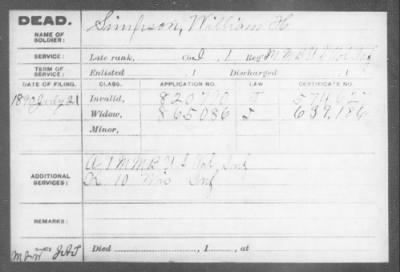 DEAD.
NAME OF SOLDIER:
Simpson, William H
SERVICE:
Late rank, Co. I, 1 Reg't M M B U S Vol. Inf
TERM OF SERVICE:
Enlisted , 1 Discharged , 1
DATE OF FILING. CLASS. APPLICATION NO. LAW CERTIFICATE NO.
1890 July 21 Invalid,
Widow, 865,086 639,186
Minor,
ADDITIONAL SERVICES:
A, 1 M M B U S Vol. Inf
10 Mo Inf
REMARKS:
Died , 1 , at